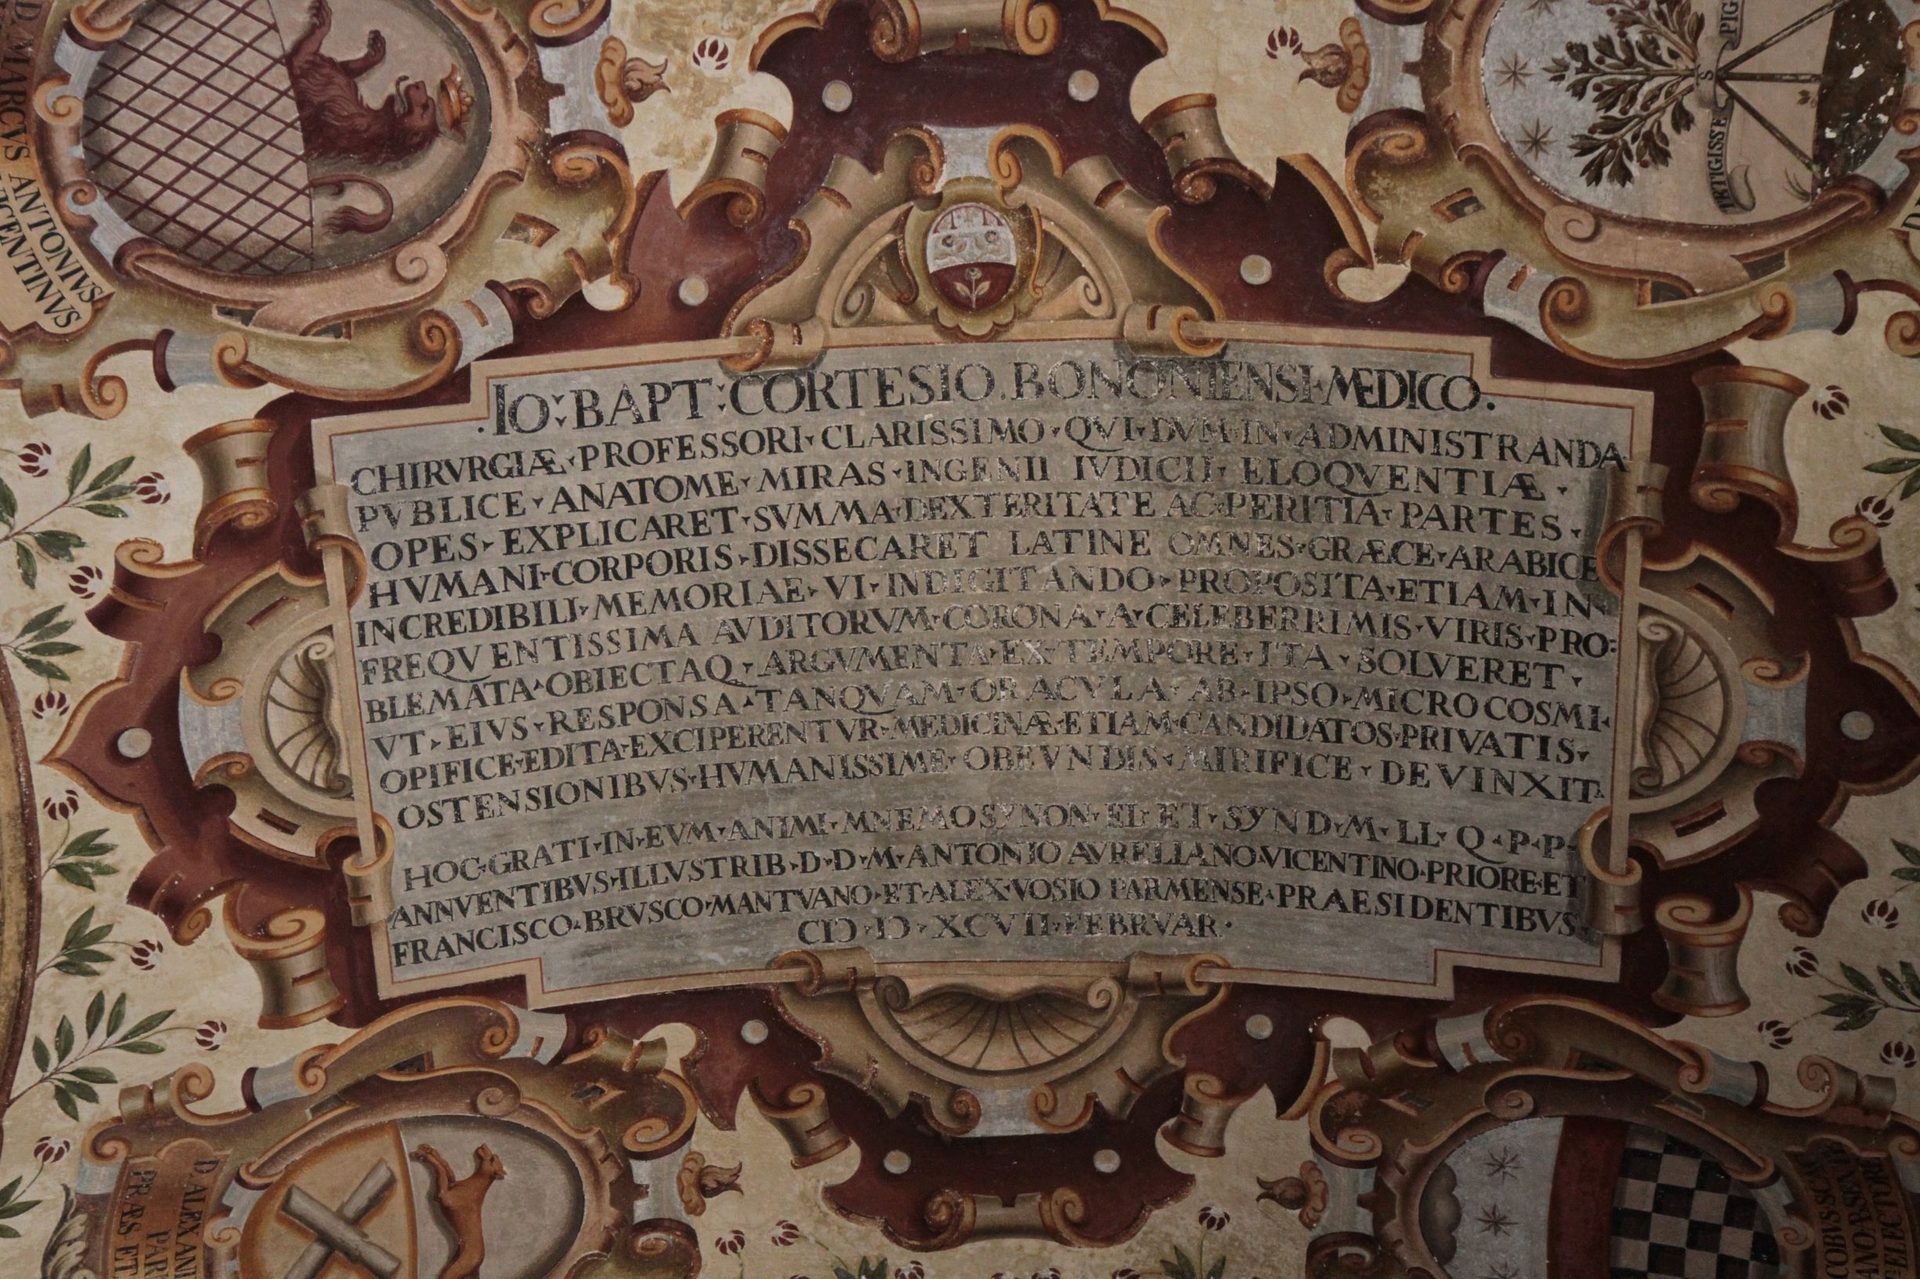 D. MARCVS ANTONIVS
VICENTINVS
PIG
ERTIGISSE
.IO: BAPT: CORTESIO. BONONIENSI MEDICO.
CHIRVRGIÆ PROFESSORI CLARISSIMO QVI DVM IN ADMINISTRANDA
PVBLICE ANATOME MIRAS INGENII IVDICII ELOQVENTIÆ
OPES EXPLICARET SVMMA DEXTERITATE AC PERITIA PARTES
HVMANI CORPORIS DISSECARET LATINE OMNES GRÆCE ARABICE
INCREDIBILI MEMORIAE VI INDIGITANDO PROPOSITA ETIAM IN
FREQVENTISSIMA AVDITORVM CORONA A CELEBERRIMIS VIRIS PRO:
BLEMATA OBIECTAQ ARGVMENTA EX TEMPORE ITA SOLVERET
VT EIVS RESPONSA TANQVAM ORACVLA AB IPSO MICROCOSMI
OPIFICE EDITA EXCIPERENTVR MEDICINÆ ETIAM CANDIDATOS PRIVATIS
OSTENSIONIBVS HVMANISSIME OBEVNDIS MIRIFICE DEVINXIT
HOC GRATI IN EVM ANIMI MNEMOSYNON EL ET SYND M LL Q P P
ANNVENTIBVS ILLVSTRIB D D M ANTONIO AVRELIANO VICENTINO PRIORE ET
FRANCISCO BRVSCO MANTVANO ET ALEX VOSIO PARMENSE PRAESIDENTIBVS
CIƆ IƆ XCVII FEBRVAR
D. ALEXAN
PAR
PRÆS ET